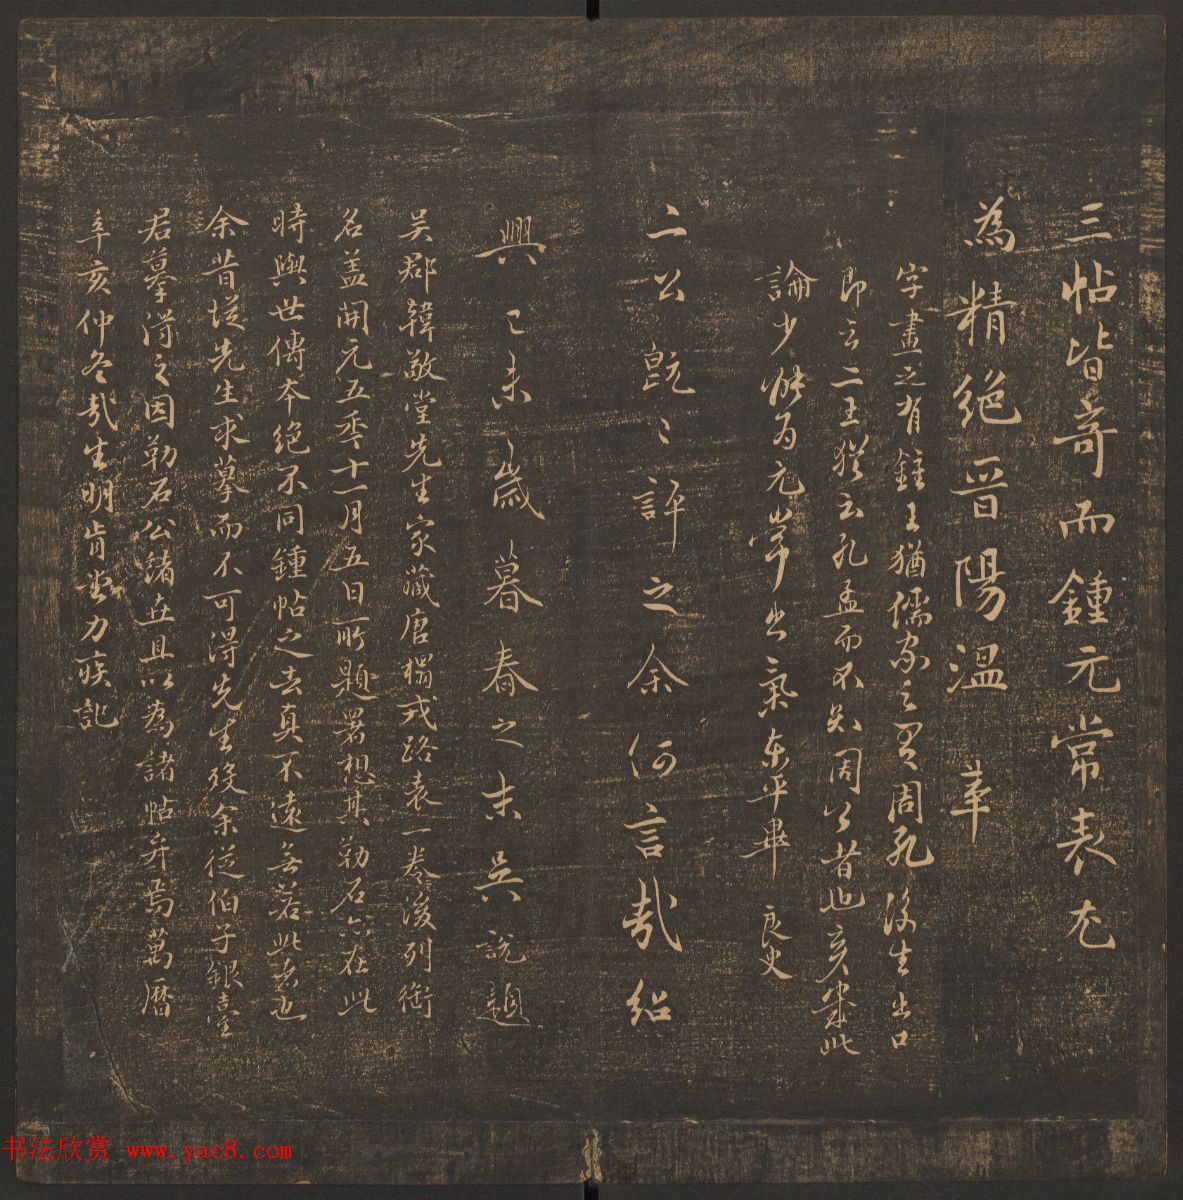 三帖皆奇而鍾元常表尤
為精絕晉陽溫革
字畫之有鍾王猶儒家之有周孔後生出口
即言二王猶云孔孟而不知周公者也家藏此
論少能為元常出氣東平畢良史
二公既已評之余何言哉紹
興己未歲暮春之末吳說題
吳郡韓敬堂先生家藏唐搨戎路表一卷後列銜
名蓋開元五季十一月五日所題署想其勒石亦在此
時與世傳本絕不同鍾帖之去真不遠無若此者也
余昔從先生求摹而不可得先生歿余從伯子銀臺
君摹得之因勒石公諸 且以為諸帖弁焉萬曆
辛亥仲冬哉生明肯堂力疾記
书法欣赏 www.yac8.com